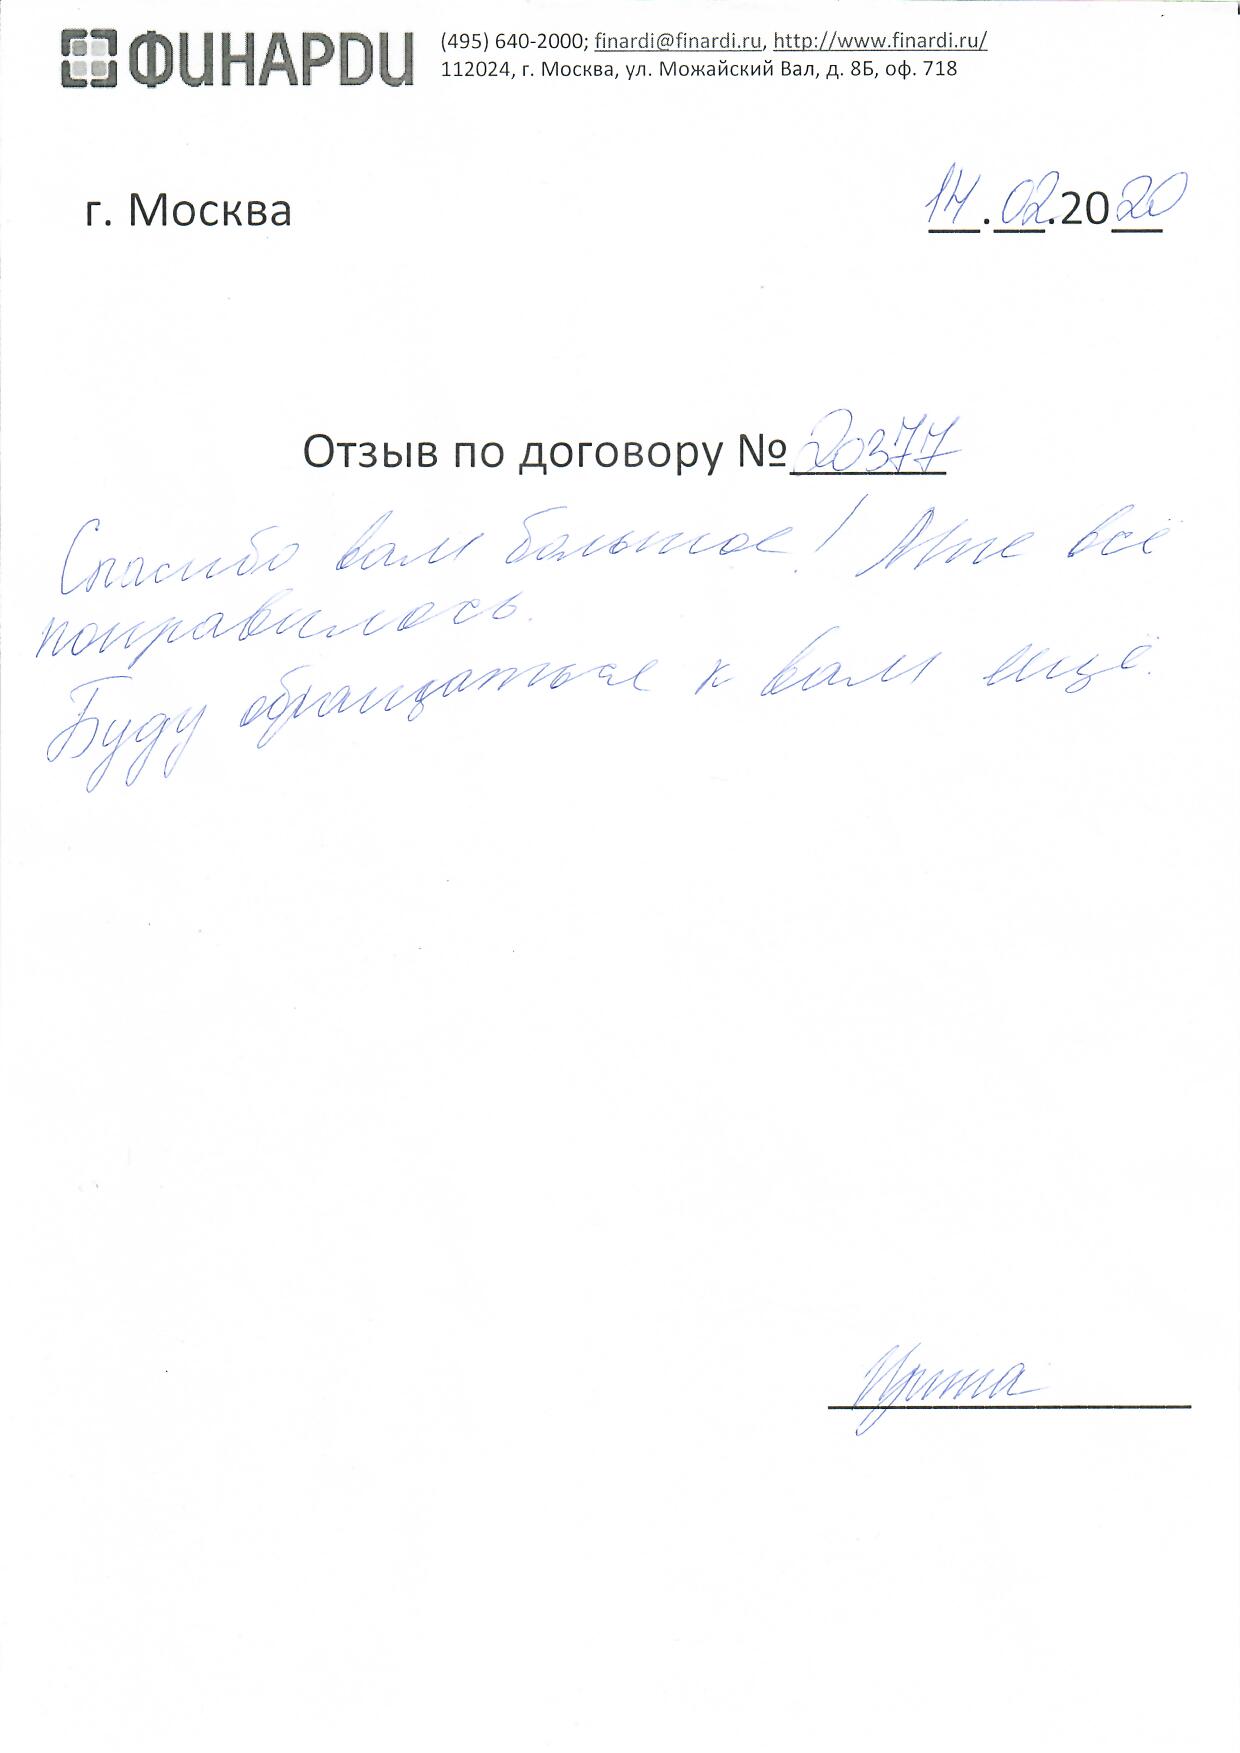 ФИНАРДИ
(495) 640-2000; finardi@finardi.ru, http://www.finardi.ru/
112024, г. Москва, ул. Можайский Вал, д. 8Б, оф. 718
г. Москва 14.02.2020
Отзыв по договору №20377
Спасибо вам большое! Мне всё
понравилось.
Буду обращаться к вам ещё.
Ирина